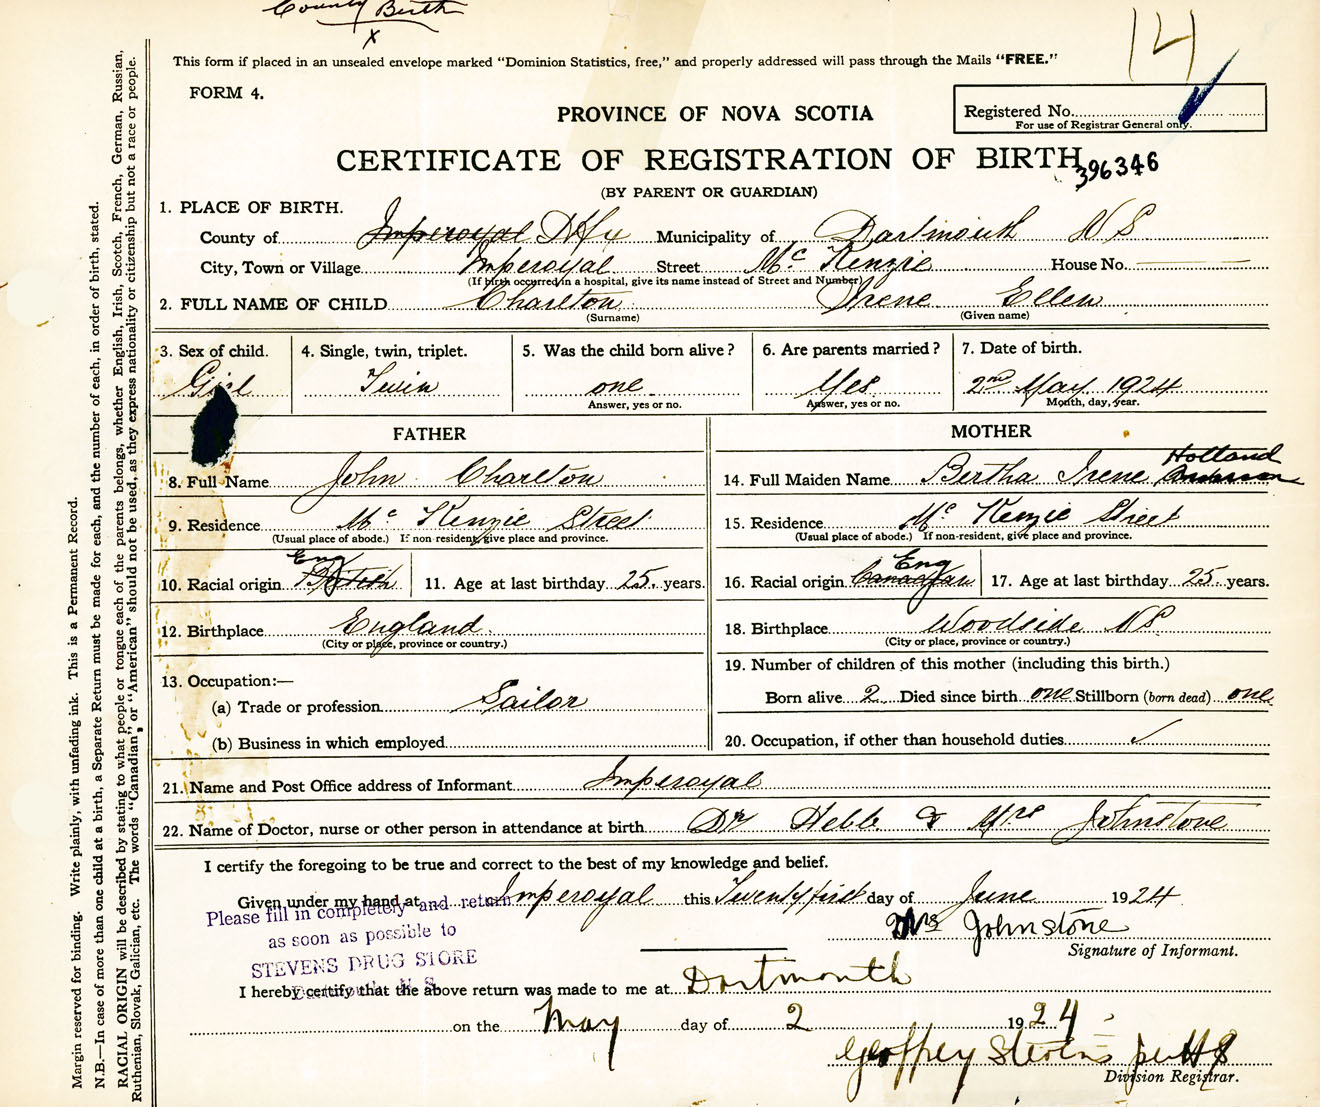 County Birth
x
14
This form if placed in an unsealed envelope marked "Dominion Statistics, free," and properly addressed will pass through the Mails "FREE."
FORM 4.
PROVINCE OF NOVA SCOTIA
Registered No.
For use of Registrar General only.
CERTIFICATE OF REGISTRATION OF BIRTH
396346
(BY PARENT OR GUARDIAN)
1. PLACE OF BIRTH.
County of Imperoyal Hfx Municipality of Dartmouth N S
City, Town or Village Imperoyal Street Mc Kenzie House No.
(If birth occurred in a hospital, give its name instead of Street and Number)
2. FULL NAME OF CHILD Charlton Irene Ellen
(Surname) (Given name)
3. Sex of child. 4. Single, twin, triplet. 5. Was the child born alive? 6. Are parents married? 7. Date of birth.
Girl Twin one Yes 2nd May 1924
Answer, yes or no. Answer, yes or no. Month, day, year.
FATHER MOTHER
Holland
8. Full Name John Charlton 14. Full Maiden Name Bertha Irene Anderson
9. Residence Mc Kenzie Street 15. Residence Mc Kenzie Street
(Usual place of abode.) If non-resident, give place and province. (Usual place of abode.) If non-resident, give place and province.
Eng Eng
10. Racial origin British 11. Age at last birthday 25. years. 16. Racial origin Canadian 17. Age at last birthday 25 years.
12. Birthplace England. 18. Birthplace Woodside NS
(City or place, province or country.) (City or place, province or country.)
19. Number of children of this mother (including this birth.)
13. Occupation:—
(a) Trade or profession Sailor Born alive 2 Died since birth one Stillborn (born dead) one
(b) Business in which employed 20. Occupation, if other than household duties
21. Name and Post Office address of Informant Imperoyal
22. Name of Doctor, nurse or other person in attendance at birth Dr Hebb & Mrs Johnstone
I certify the foregoing to be true and correct to the best of my knowledge and belief.
Given under my hand at Imperoyal this Twenty first day of June 1924
Please fill in completely and return
as soon as possible to
STEVENS DRUG STORE
Dartmouth, N. S.
Mrs Johnstone
Signature of Informant.
I hereby certify that the above return was made to me at Dartmouth
on the May day of 2 1924
Geoffrey Stevens per HS
Division Registrar.
Margin reserved for binding. Write plainly, with unfading ink. This is a Permanent Record.
N.B.—In case of more than one child at a birth, a Separate Return must be made for each, and the number of each, in order of birth, stated.
RACIAL ORIGIN will be described by stating to what people or tongue each of the parents belongs, whether English, Irish, Scotch, French, German, Russian,
Ruthenian, Slovak, Galician, etc. The words "Canadian," or "American" should not be used, as they express nationality or citizenship but not a race or people.